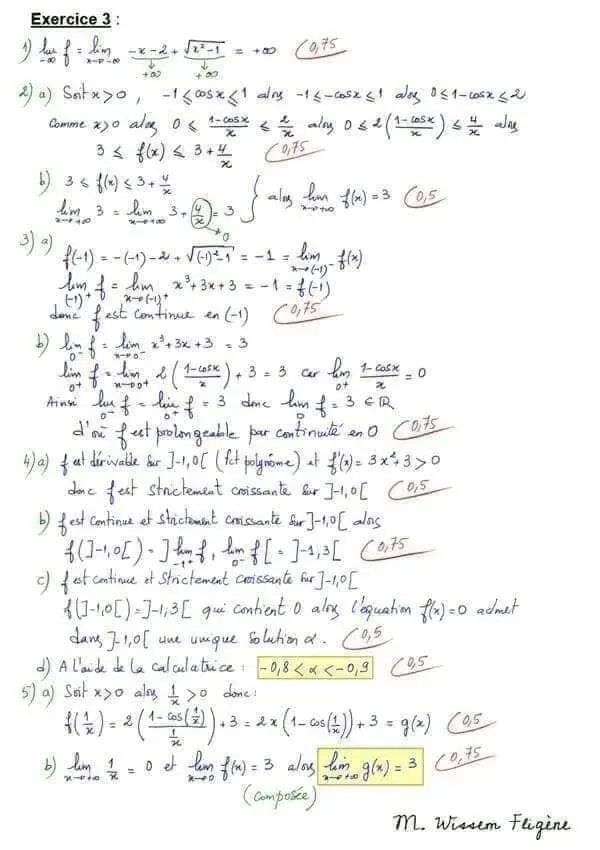 Exercice 3 :
1) lim_{-∞} f = lim_{x→-∞} -x-2 + √(x²-1) = +∞ (0,75
↓ +∞ ↓ +∞
2) a) Soit x>0 , -1 ≤ cosx ≤ 1 alors -1 ≤ -cosx ≤ 1 alors 0 ≤ 1-cosx ≤ 2
Comme x>0 alors 0 ≤ (1-cosx)/x ≤ 2/x alors 0 ≤ 2((1-cosx)/x) ≤ 4/x alors
3 ≤ f(x) ≤ 3+4/x (0,75
b) 3 ≤ f(x) ≤ 3+4/x
lim_{x→+∞} 3 = lim_{x→+∞} 3+4/x = 3 } alors lim_{x→+∞} f(x) = 3 (0,5
→0
3) a)
f(-1) = -(-1)-2+√((-1)²-1) = -1 = lim_{x→(-1)⁻} f(x)
lim_{(-1)⁺} f = lim_{x→(-1)⁺} x³+3x+3 = -1 = f(-1)
donc f est continue en (-1) (0,75
b) lim_{0⁻} f = lim_{x→0⁻} x³+3x+3 = 3
lim_{0⁺} f = lim_{x→0⁺} 2((1-cosx)/x)+3 = 3 car lim_{0⁺} (1-cosx)/x = 0
Ainsi lim_{0⁻} f = lim_{0⁺} f = 3 donc lim_{0} f = 3 ∈ ℝ
d'où f est prolongeable par continuité en 0 (0,75
4) a) f est dérivable sur ]-1,0[ (fct polynôme) et f'(x) = 3x²+3 > 0
donc f est strictement croissante sur ]-1,0[ (0,5
b) f est continue et strictement croissante sur ]-1,0[ alors
f(]-1,0[) = ]lim_{-1⁺} f, lim_{0⁻} f[ = ]-1,3[ (0,75
c) f est continue et strictement croissante sur ]-1,0[
f(]-1,0[) = ]-1,3[ qui contient 0 alors l'équation f(x)=0 admet
dans ]-1,0[ une unique solution α. (0,5
d) A l'aide de la calculatrice : -0,8 < α < -0,9 (0,5
5) a) Soit x>0 alors 1/x > 0 donc :
f(1/x) = 2((1-cos(1/x))/(1/x))+3 = 2x(1-cos(1/x))+3 = g(x) (0,5
b) lim_{x→+∞} 1/x = 0 et lim_{x→0} f(x) = 3 alors lim_{x→+∞} g(x) = 3 (0,75
(composée)
M. Wissem Fligène